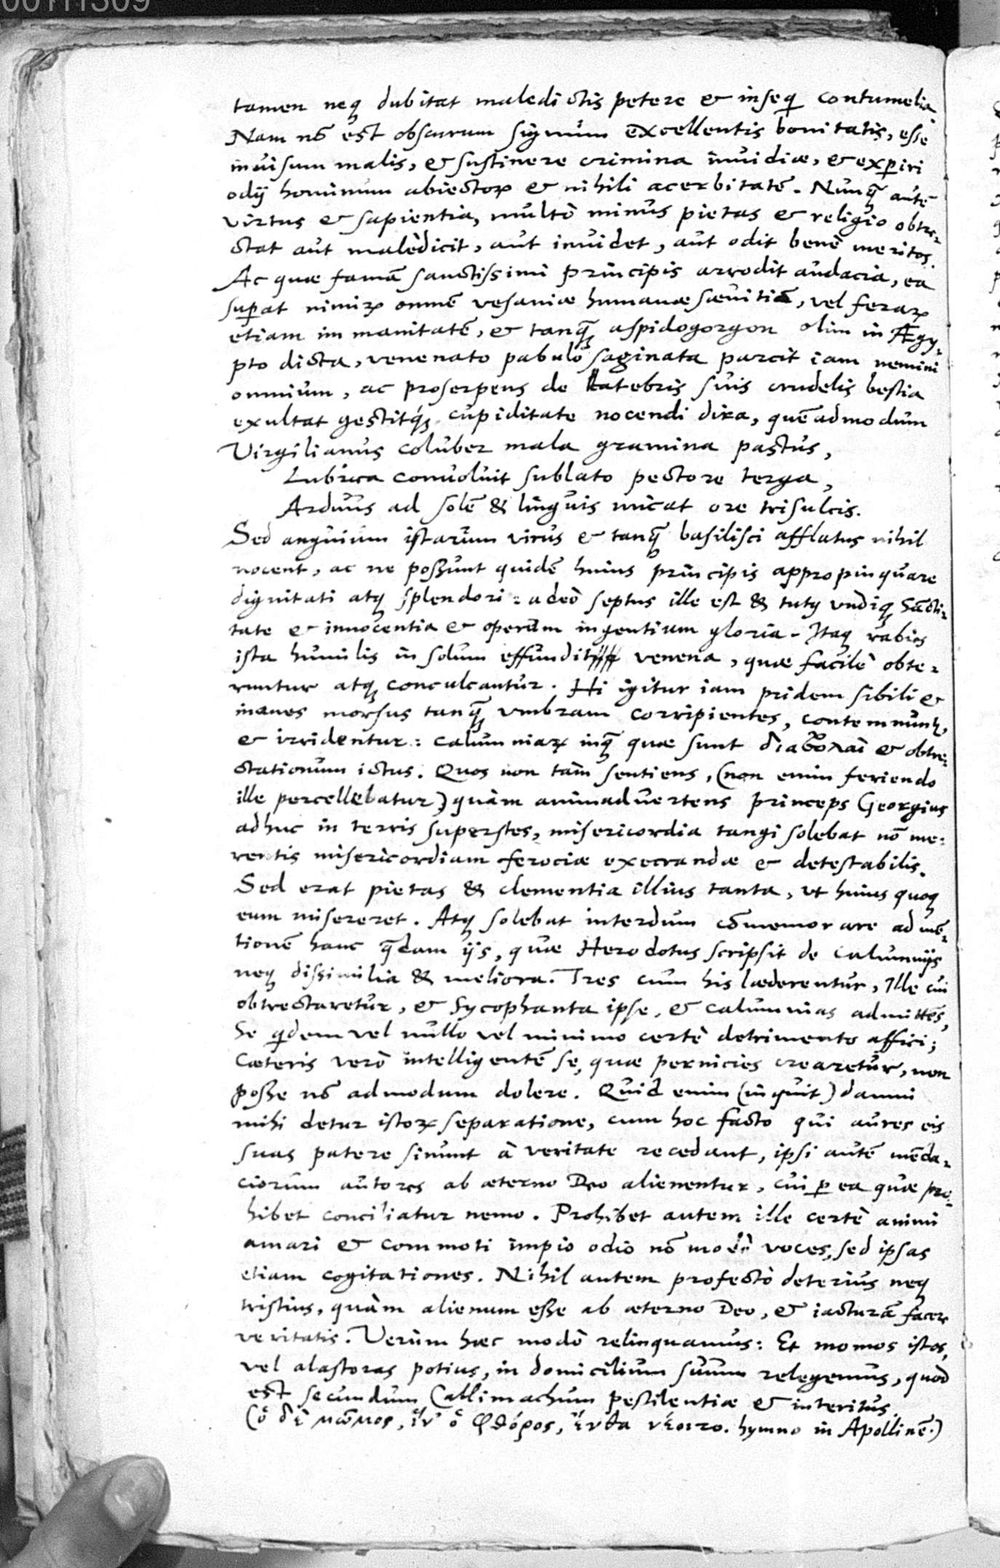 00111309
tamen neq dubitat maledictis petere & inseq contumelia
Nam nō est obscurum signum excellentis bonitatis, esse
inuisum malis, & sustinere crimina inuidiæ, & experiri
odij hominum abiectoꝝ & nihili acerbitatē. Nunꝗ̃ autē
virtus & sapientia, multò minus pietas & religio obtre-
ctat aut maledicit, aut inuidet, aut odit benè meritos.
Ac quæ famā sanctissimi principis arrodit audacia, ea
supat nimiꝝ omnē vesaniæ humanæ sæuitiā, vel feraꝝ
etiam immanitatē, & tanꝗ̃ aspidogorgon olim in Ægy-
pto dicta, venenato pabulo saginata parcit iam nemini
omnium, ac proserpens de latebris suis crudelis bestia
exultat gestitq́; cupiditate nocendi dira, quēadmodum
Virgilianus coluber mala gramina pastus,
Lubrica conuoluit sublato pectore terga,
Arduus ad solē & linguis micat ore trisulcis.
Sed anguium istarum virus & tanꝗ̃ basilisci afflatus nihil
nocent, ac ne possunt quidē huius principis appropinquare
dignitati atq splendori: adeò septus ille est & tutꝰ vndiq sācti-
tate & innocentia & operum ingentium gloria. Itaq rabies
ista humilis in solum effundit venena, quæ facilè obte-
runtur atq conculcantur. Hi igitur iam pridem sibili &
inanes morsus tanꝗ̃ vmbram corripientes, contemnunt,
& irridentur: calumniaꝝ inꝗ̃ quæ sunt διαβολαὶ & obtre-
ctationum ictus. Quos non tam sentiens, (non enim feriendo
ille percellebatur) quàm animaduertens princeps Georgius
adhuc in terris superstes, misericordia tangi solebat nō me-
rentis misericordiam ferociæ execrandæ & detestabilis.
Sed erat pietas & clementia illius tanta, vt huius quoq
eum misereret. Atq solebat interdum cōmemorare ad
tionē hanc qdam ijs, quæ Herodotus scripsit de calumnijs
neq dissimilia & meliora. Tres cum his læderentur, Ille cui
obtrectaretur, & Sycophanta ipse, & calumnias admittēs,
Se qdem vel nullo vel minimo certè detrimento affici;
Cæteris verò intelligentē se, quæ pernicies crearetur, non
posse nō admodum dolere. Quid enim (inquit) damni
mihi detur istoꝝ separatione, cum hoc facto qui aures eis
suas patere sinunt à veritate recedant, ipsi autē mēda-
ciorum autores ab æterno Deo alienentur, cui p ea quæ pro-
hibet conciliatur nemo. Prohibet autem ille certè animi
amari & commoti impio odio nō modò voces, sed ipsas
etiam cogitationes. Nihil autem profectò deterius neq
tristius, quàm alienum esse ab æterno Deo, & iacturā facere
veritatis. Verùm hæc modò relinquamus: Et momos istos,
vel alastoras potius, in domicilium suum relegemus, quod
est secundum Callimachum pestilentiæ & interitus,
(ὁ δὲ μῶμος, ἵν' ὁ φθόρος, ἔνθα νέοιτο. hymno in Apollinē.)